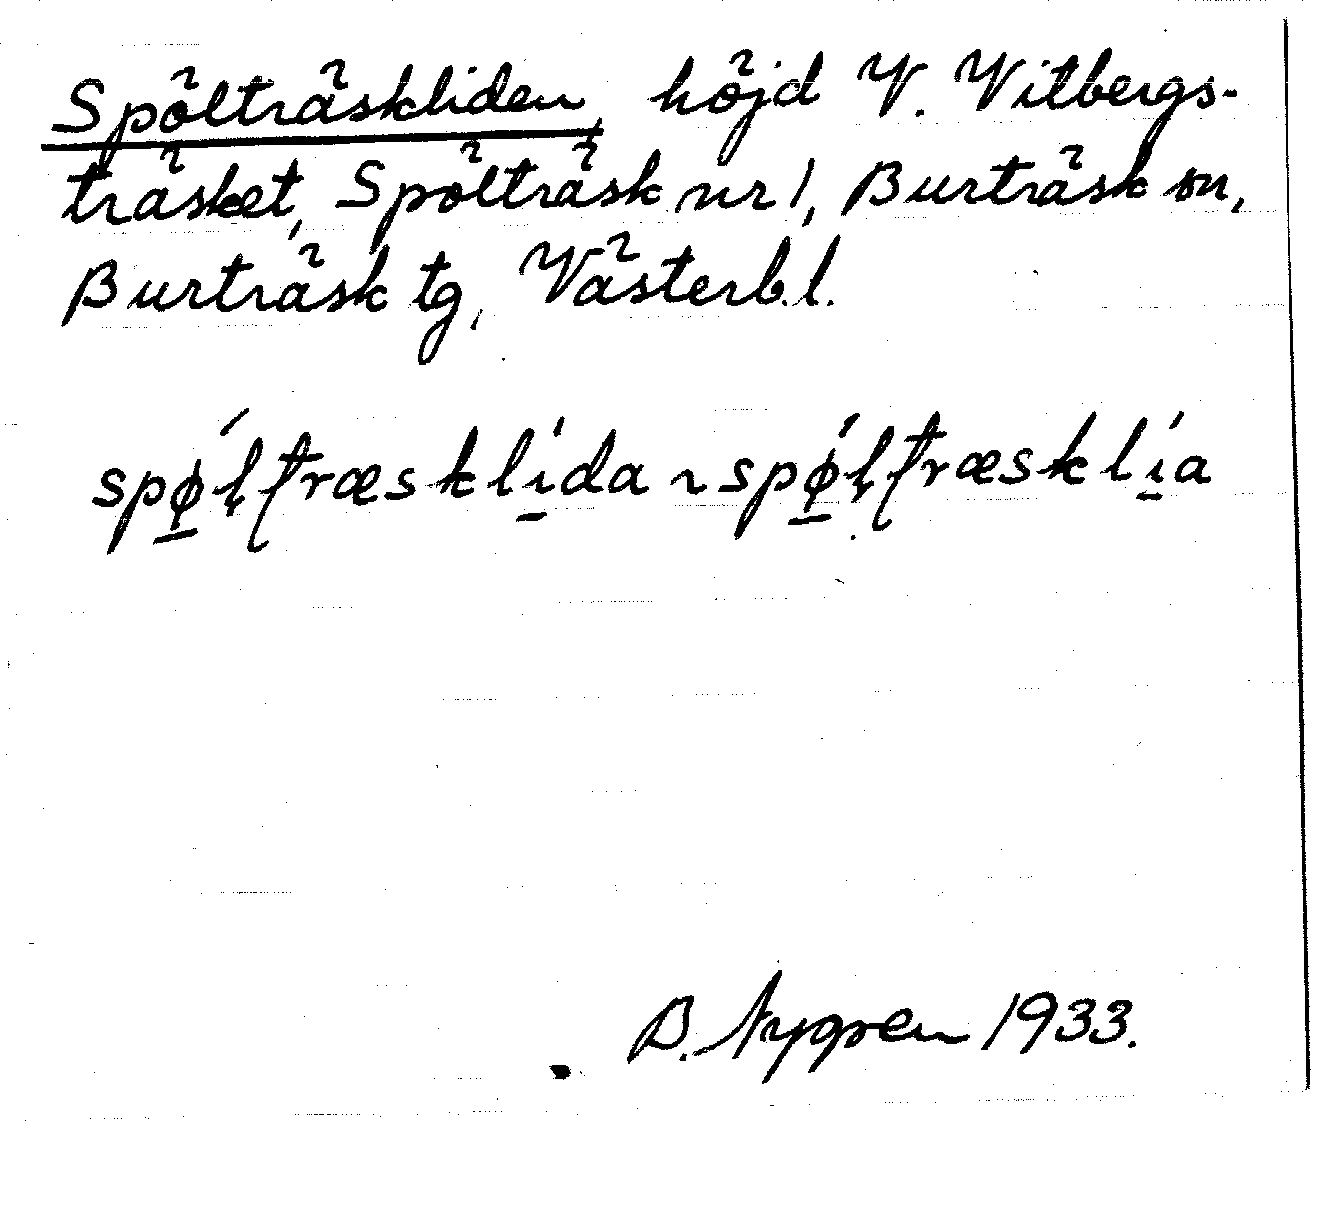 Spölträskliden, höjd V. Vitbergs-
träsket, Spölträsk nr 1, Burträsk sn,
Burträsk tg, Västerb. l.
spǿ̱ḷʈræsklí̱da ~ spǿ̱ḷʈræsklí̱a
B. Nygren 1933.